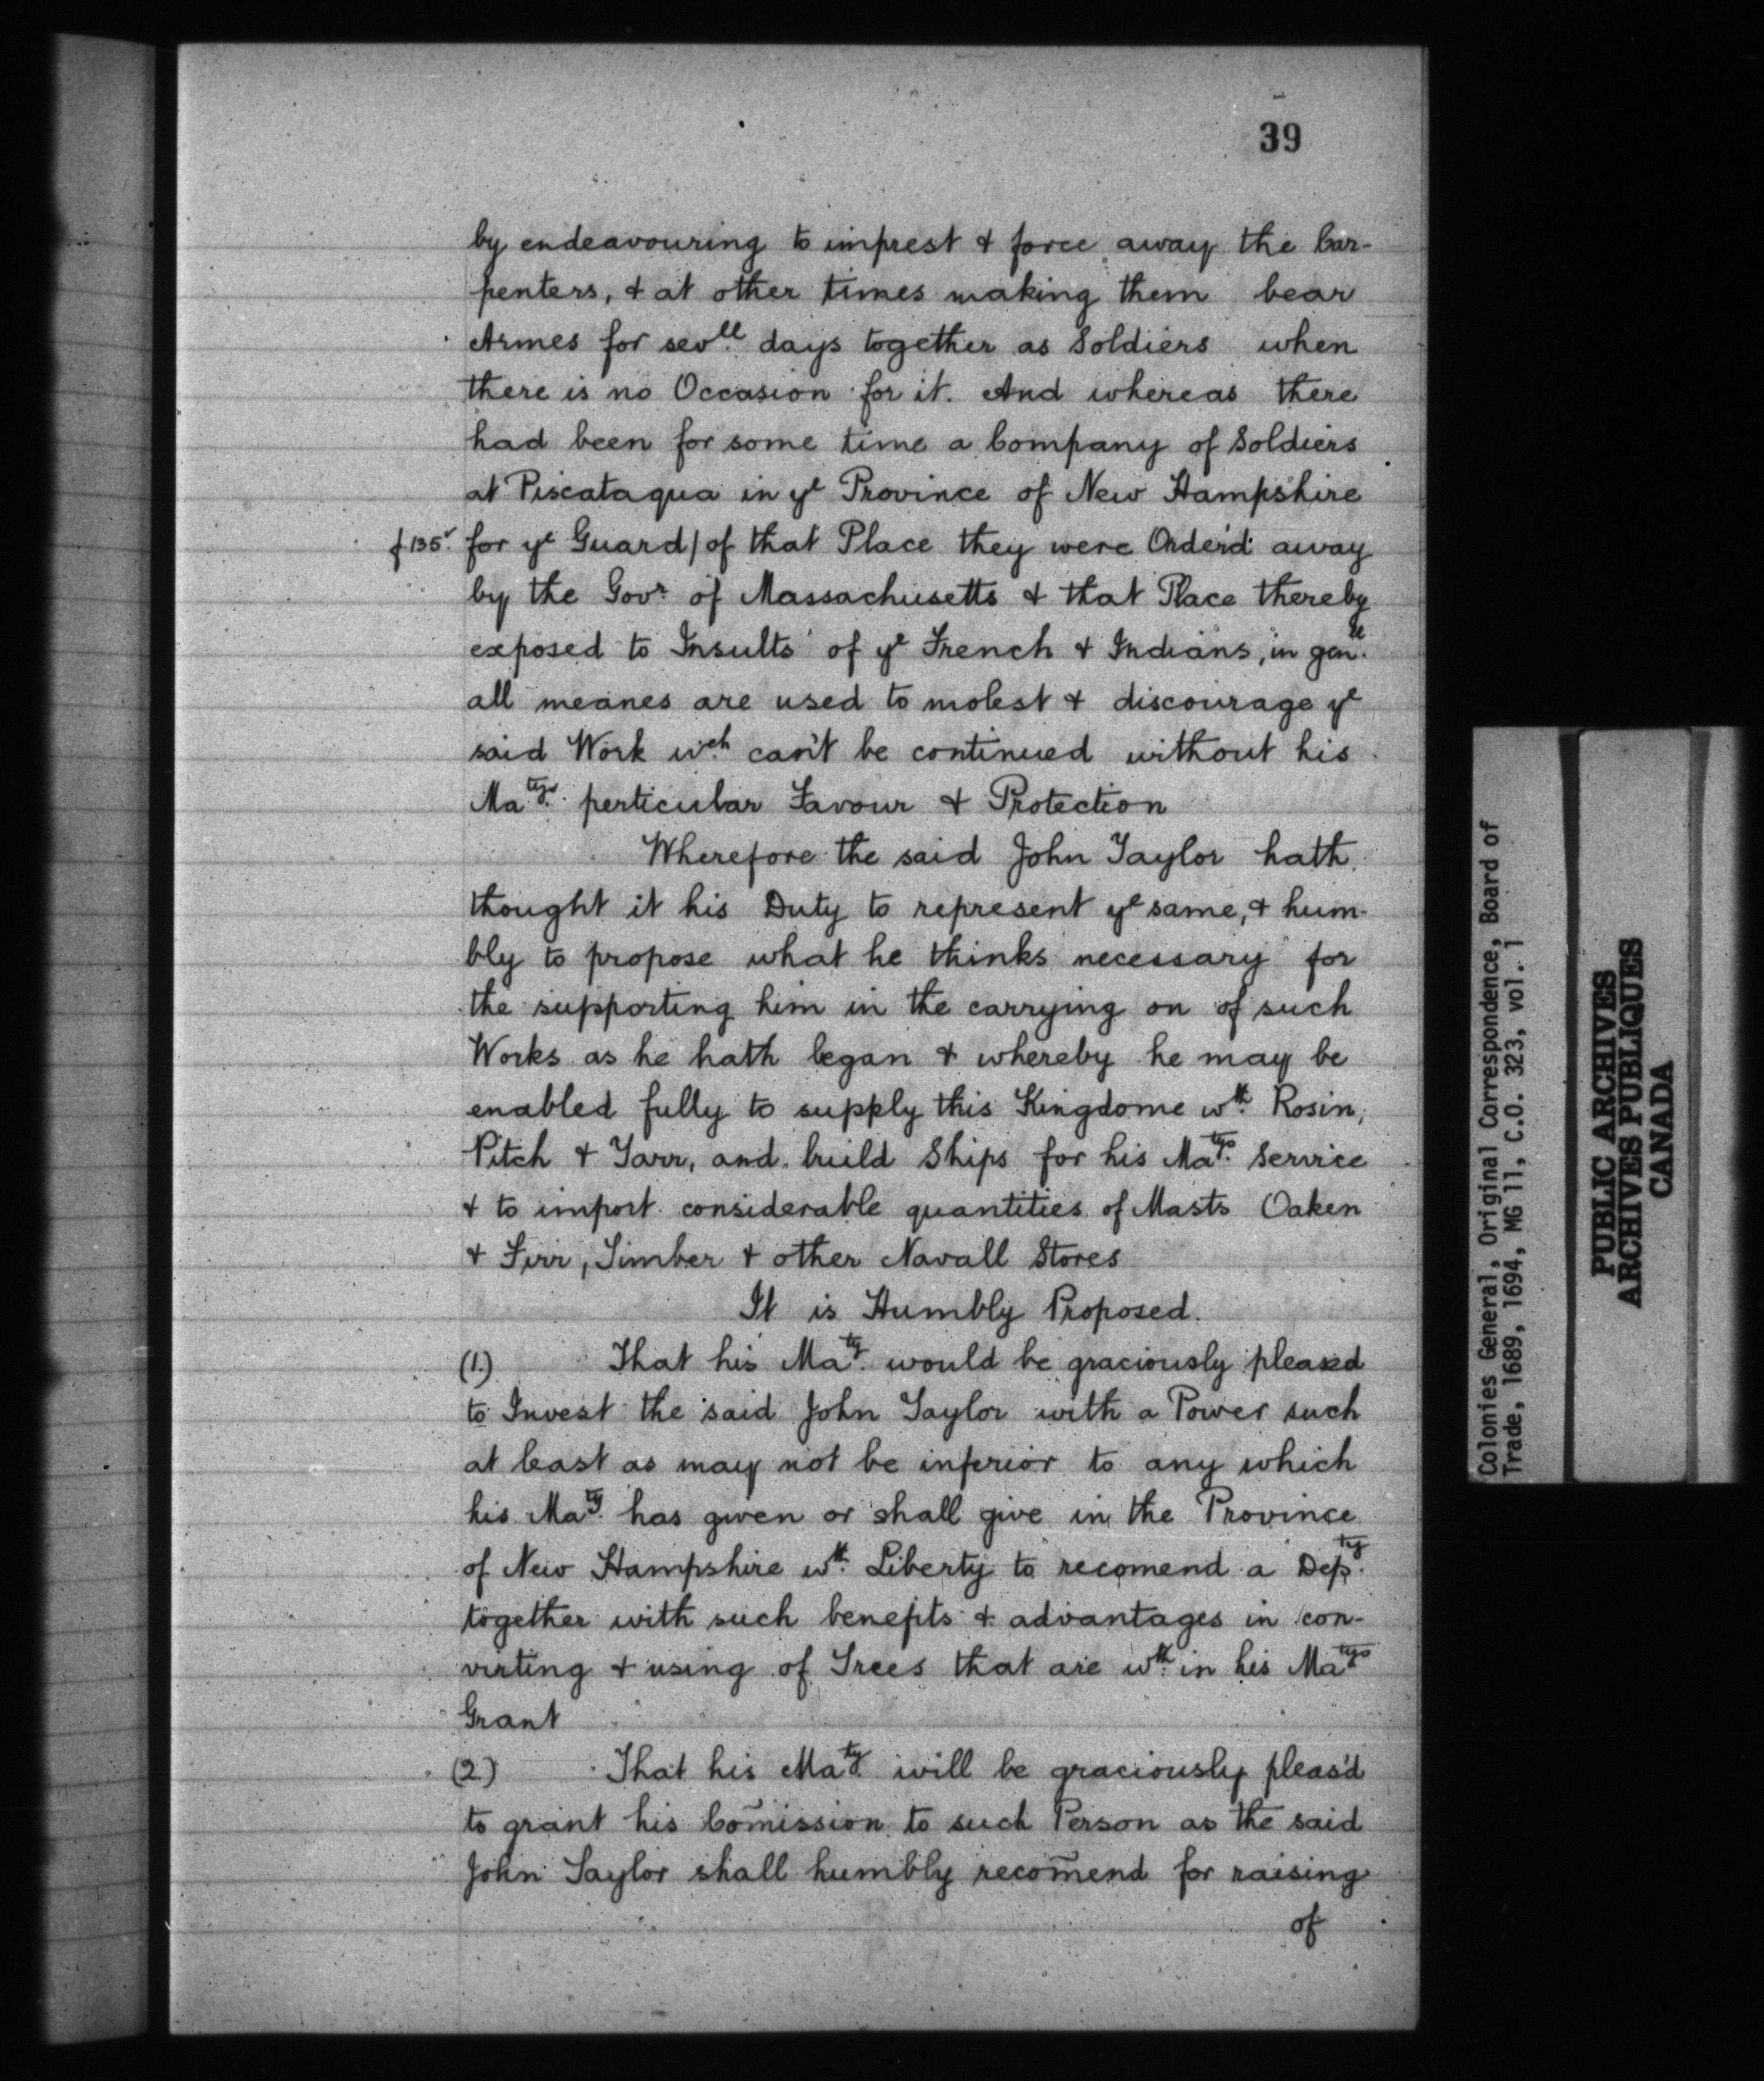 39
by endeavouring to imprest & force away the Car-
penters, & at other times making them bear
Armes for sevll. days together as Soldiers when
there is no Occasion for it. And whereas there
had been for some time a Company of Soldiers
at Piscataqua in ye Province of New Hampshire
f 135v. for ye Guard/of that Place they were Order'd away
by the Govr. of Massachusetts & that Place thereby
exposed to Insults of ye French & Indians, in genll.
all meanes are used to molest & discourage ye
said Work wch. can't be continued without his
Matys. perticular Favour & Protection
Wherefore the said John Taylor hath
thought it his Duty to represent ye same, & hum-
bly to propose what he thinks necessary for
the supporting him in the carrying on of such
Works as he hath began & whereby he may be
enabled fully to supply this Kingdome wth. Rosin,
Pitch & Tarr, and build Ships for his Matys. Service
& to import considerable quantities of Masts Oaken
& Firr, Timber & other Navall Stores
It is Humbly Proposed.
(1.) That his Maty. would be graciously pleased
to Invest the said John Taylor with a Power such
at least as may not be inferior to any which
his Maty. has given or shall give in the Province
of New Hampshire wth. Liberty to recomend a Depty.
together with such benefits & advantages in con-
virting & using of Trees that are wth.in his Matys
Grant
(2.) That his Maty. will be graciously pleas'd
to grant his Com̃ission to such Person as the said
John Taylor shall humbly recom̃end for raising
of
Colonies General, Original Correspondence, Board of
Trade, 1689, 1694, MG 11, C.O. 323, vol. 1
PUBLIC ARCHIVES
ARCHIVES PUBLIQUES
CANADA